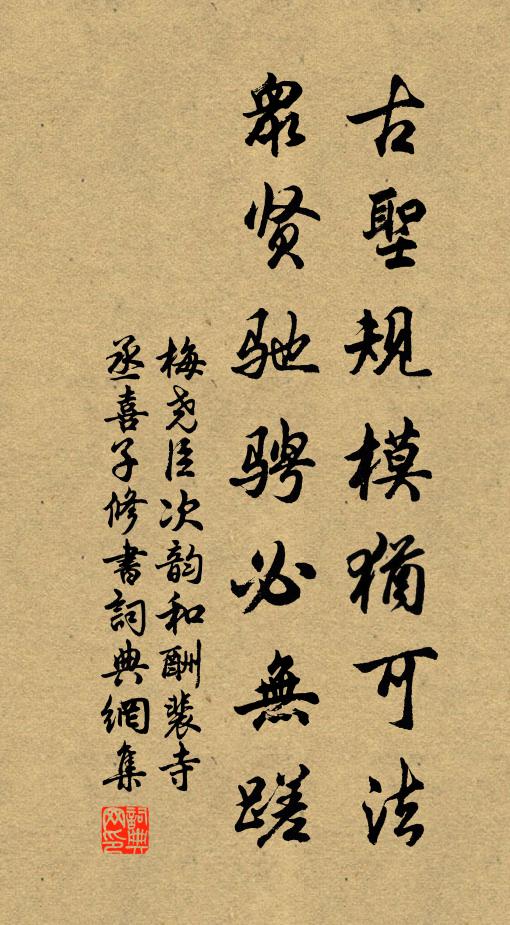 古聖規模猶可法
眾贤驰骋必無蹉
梅尧臣次韵和酬裴寺
丞喜子修書詞典網集
詞典网印